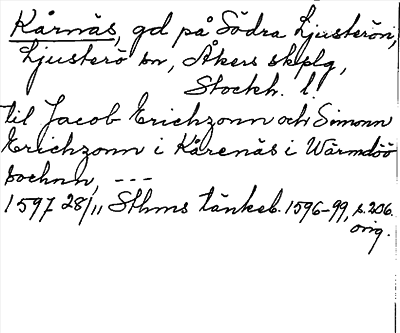 Kårnäs, gd på Södra Ljusterön,
Ljusterö sn, Åkers skplg,
Stockh. l.
til Jacob Erichzonn och Simonn
Erichzonn i Kårenäs i Wärmdöö
sochnn, ---
1597 28/11 Sthms tänkeb. 1596-99, s. 206.
orig.